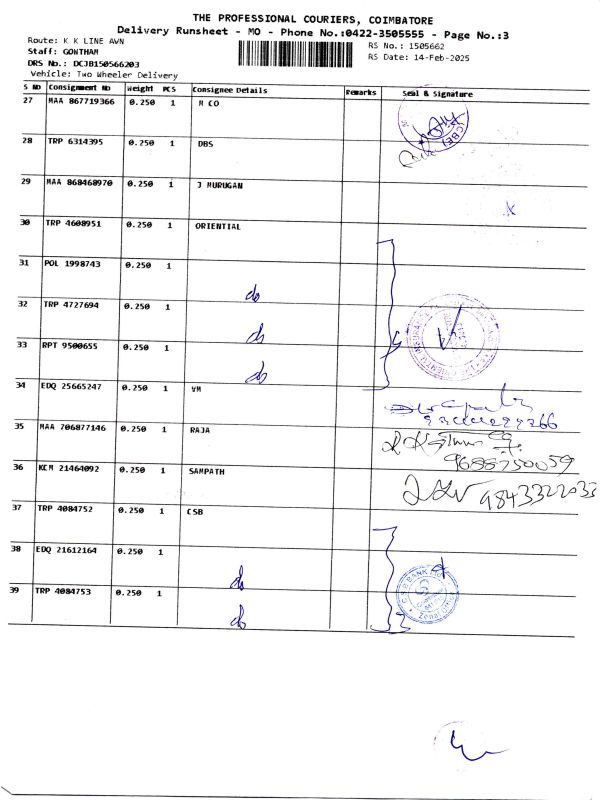 THE PROFESSIONAL COURIERS, COIMBATORE
Delivery Runsheet - MO - Phone No.:0422-3505555 - Page No.:3
Route: K K LINE AWN
RS No.: 1505662
Staff: GONTHAM
RS Date: 14-Feb-2025
DRS No.: DCJB150566203
Vehicle: Two Wheeler Delivery
S NO Consignment NO Weight PCS Consignee Details Remarks Seal & Signature
27 MAA 867719366 0.250 1 M CO
(CBE)
28 TRP 6314395 0.250 1 DBS
29 MAA 868468970 0.250 1 J MURUGAN
30 TRP 4608951 0.250 1 ORIENTIAL
31 POL 1998743 0.250 1 do
32 TRP 4727694 0.250 1 do
33 RPT 9500655 0.250 1 do
34 EDQ 25665247 0.250 1 VM
35 MAA 706877146 0.250 1 RAJA
9688750059
36 KCM 21464092 0.250 1 SAMPATH
9843322033
37 TRP 4084752 0.250 1 CSB
38 EDQ 21612164 0.250 1 do
CSB BANK
39 TRP 4084753 0.250 1 do
Zonal Office